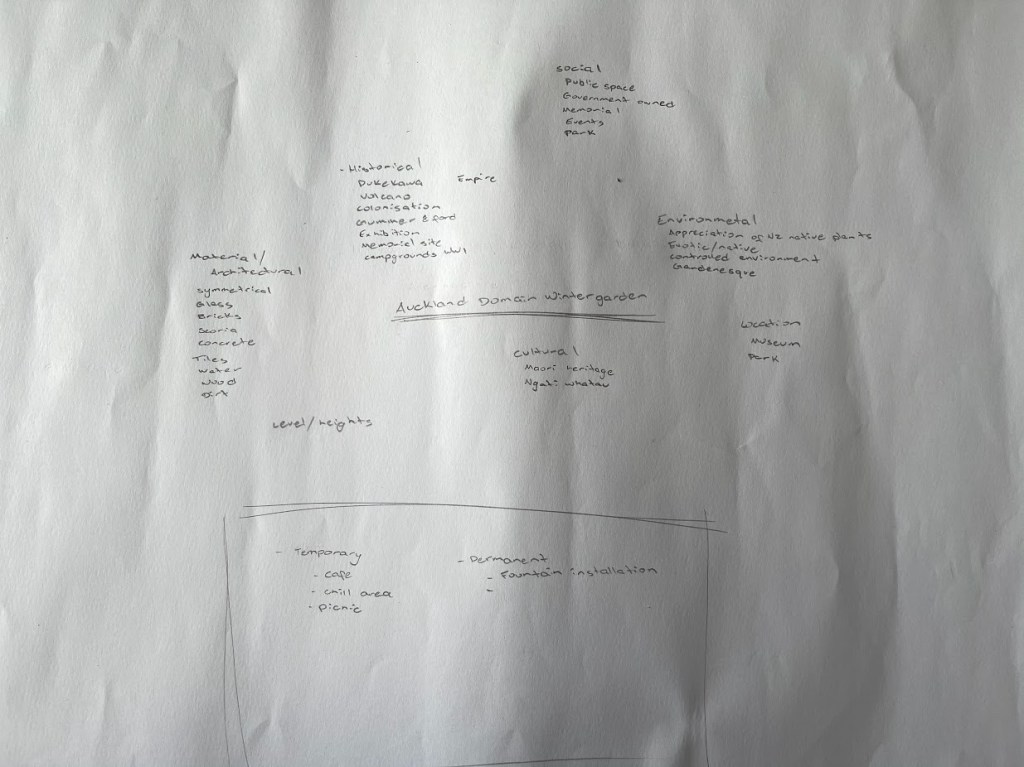 social
Public space
Government owned
Memorial
Events
Park
- Historical
Dukekawa
Empire
Volcano
Colonisation
Grummer & Ford
Exhibition
Memorial site
campgrounds WW1
Environmetal
Appreciation of NZ native plants
Exotic/native
controlled environment
Gardenesque
Material/
Architectural
symmetrical
Glass
Bricks
Scoria
concrete
Tiles
water
wood
Auckland Domain Wintergarden
Location
Museum
Park
Cultural
Maori heritage
Ngati whatau
Level/heights
- Temporary
- cafe
- chill area
- picnic
- Permanent
- Fountain installation
-